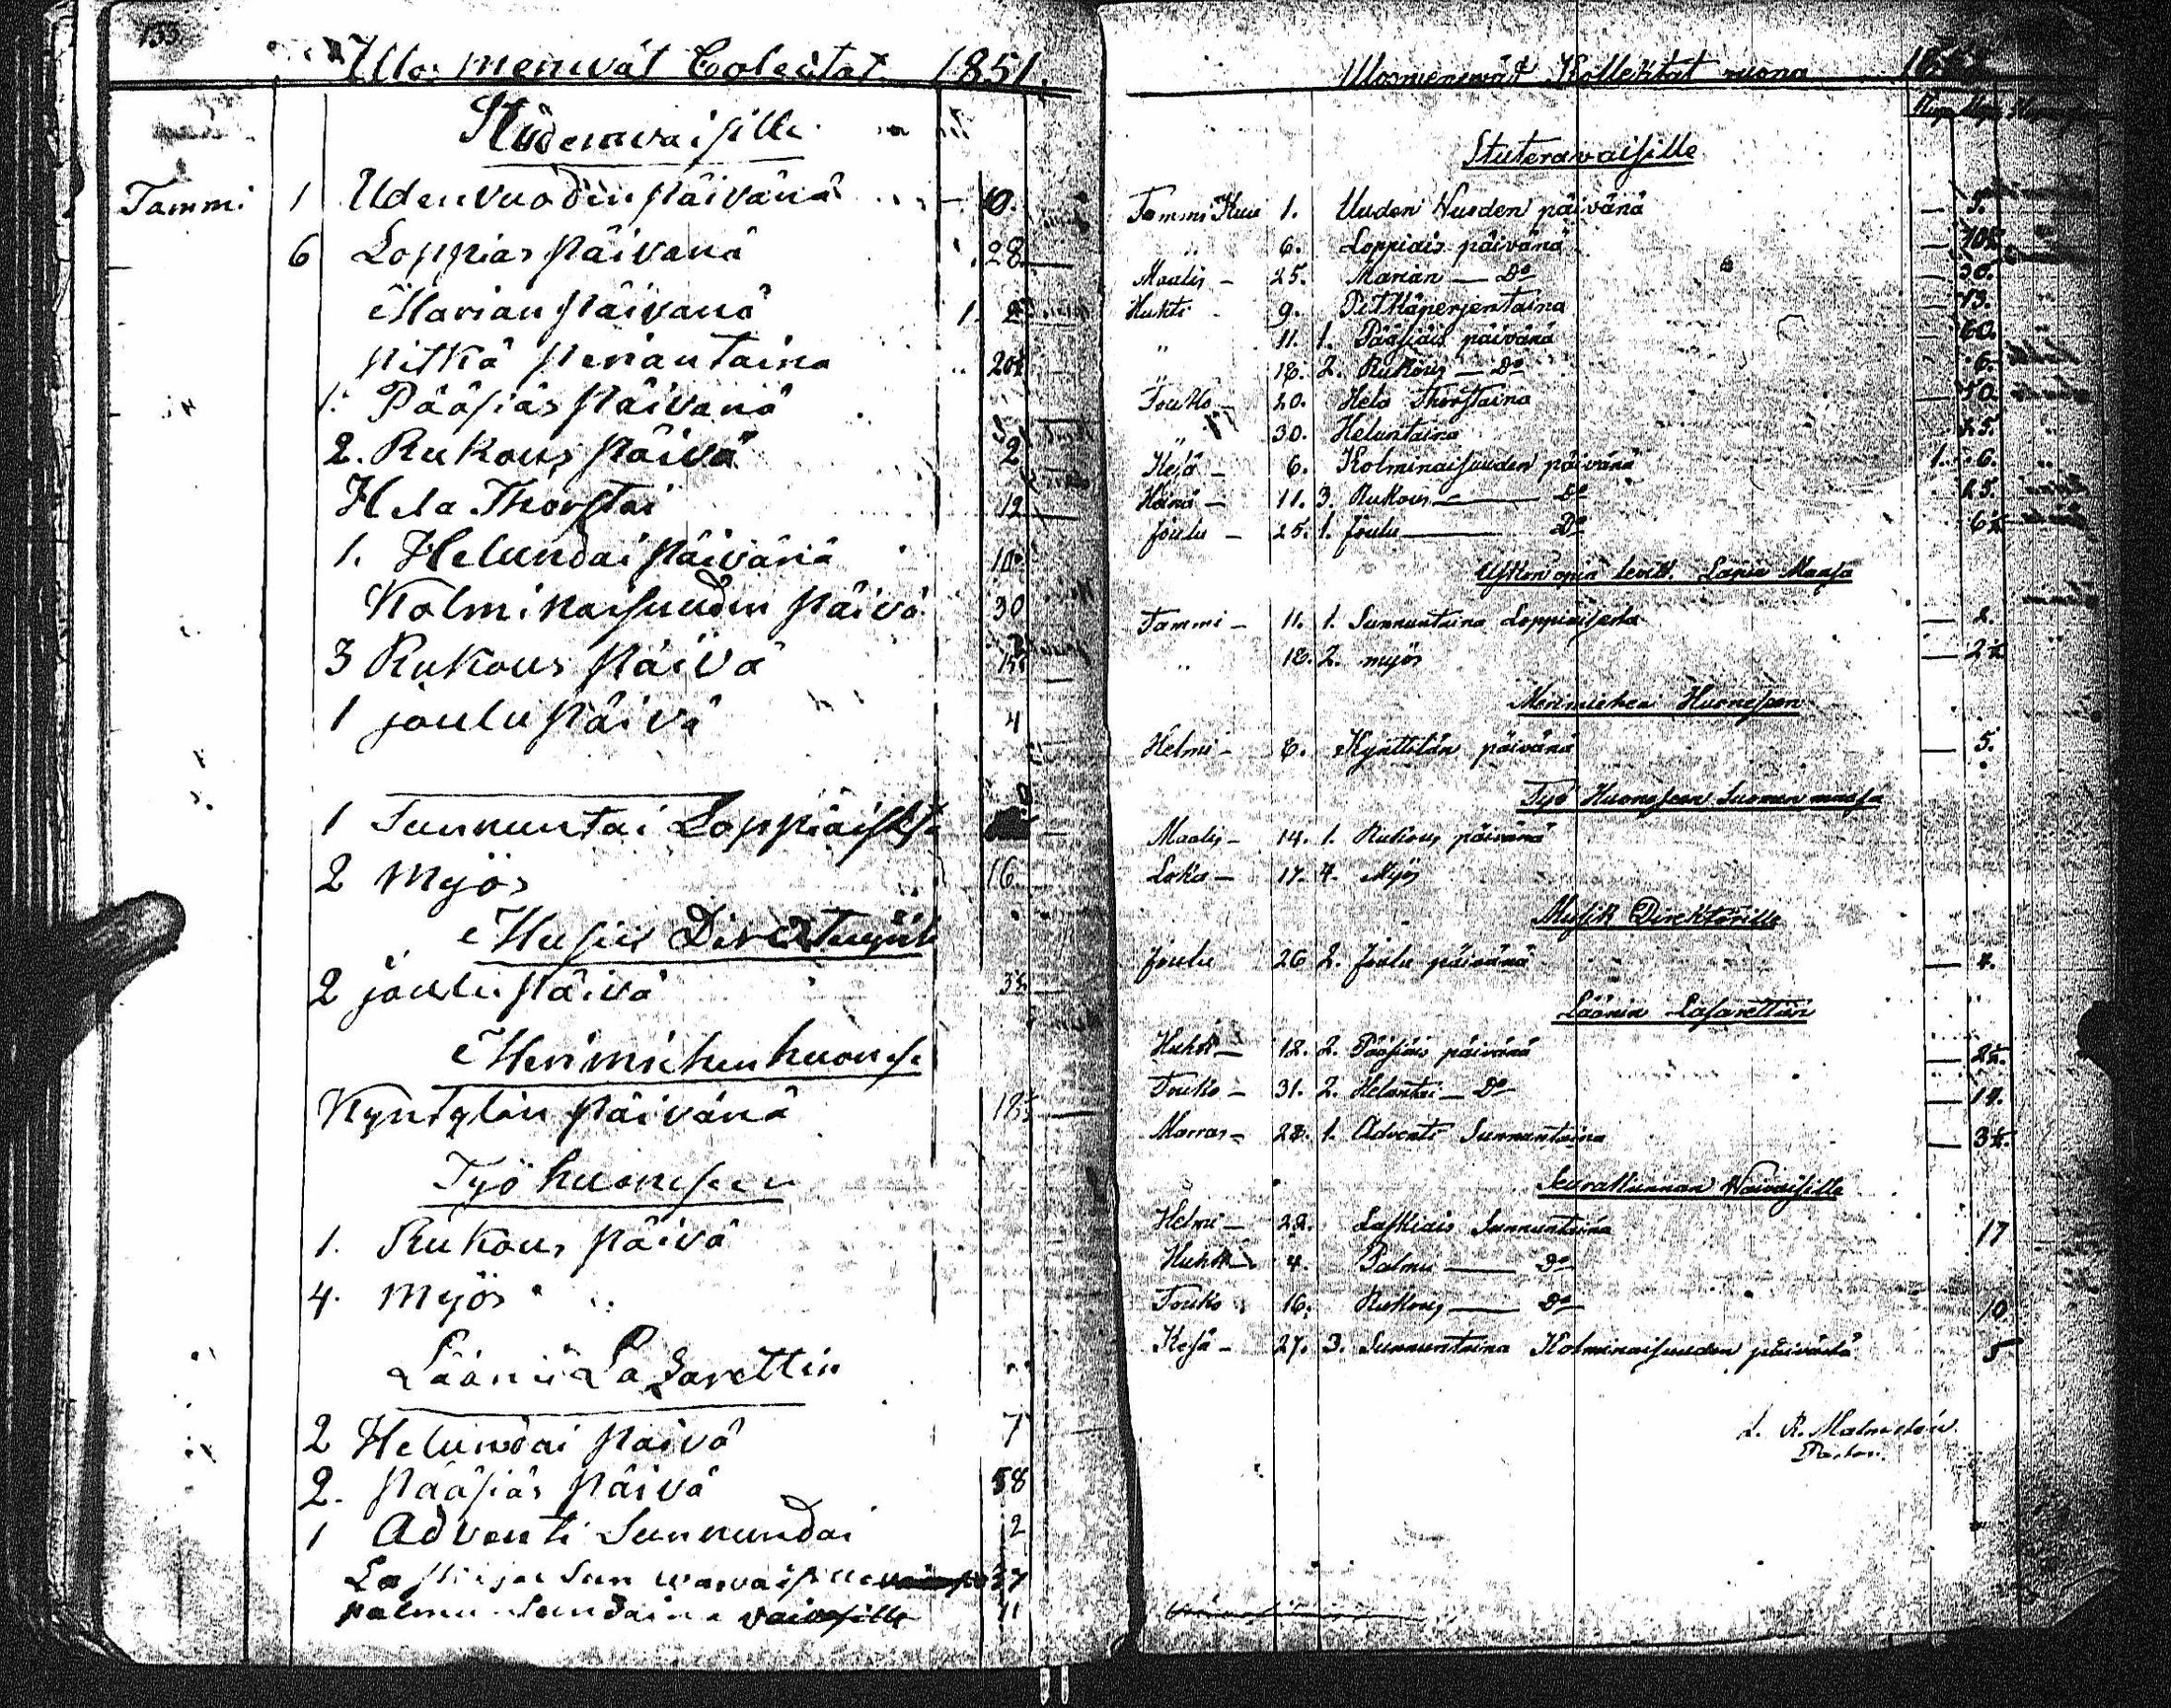 133
Ulos menivät Colectat 1851.
Stüderavaisille
Tammi 1 Uden vuodin päivänä — 10.
6 Loppias päivänä 28
Marian päivänä 1. 2
pitkä perjantaina 20½
1. Pääsiäs päivänä
2. Rukous päivä 2
Hela Thorstai 12
1. Helundai päivänä 10
Kolminaisuudin päivä 30
3 Rukous päivä 15
1 joulu päivä 4
1 Sunnuntai Loppiäisestä
2 Myös 16
Musik
2 joulu päivä 3½
Merimiehen huonese
Kyntylän päivänä 18½
Työ huoneseen
1. Rukous päivä
4. Myös
Läänin Lazarettin
2 Helundai päivä 7
2. pääsiäs päivä 58
1 Adventi Sunnundai 2
37
palmu Sundaina vaivasille 11
Ulosmenewät Kollektat vuona
Stuteravaisille
Tammi Kuu 1. Uuden Vuoden päivänä — 9.
„ 6. Loppiais päivänä — 10½
Maalis – 25. Marian — Do — 30.
Huhti – 9. Pitkäperjentaina — 13.
„ 11. 1. Pääsiäis päivänä — 60.
„ 18. 2. Rukous — Do — 6.
Touko – 20. Hela Thorstaina — 10
„ 30. Heluntaina 25.
Kesä – 6. Kolminaisuuden päivänä 1. 6.
Heinä – 11. 3. Rukous — Do 25.
Joulu – 25. 1. Joulu — Do 6½
Uskon opin levit. Lapin Maasa
Tammi – 11. 1. Sunnuntaina Loppiaisesta — 2.
„ 18. 2. myös — 2½
Merimiehen Huoneseen
Helmi – 8. Kynttilän päivänä — 5.
Työ Huoneseen Suomen maasa
Maalis – 14. 1. Rukous päivänä
Loka – 17. 4. Myös
Musik Direktörille
Joulu 26 2. Joulu päivänä — 4.
Läänin Lasarettiin
Huhti – 12. 2. Pääsiäis päivänä — 2½.
Touko – 31. 2. Heluntai — Do — 14.
Marras – 28. 1. Adventi Sunnuntaina — 3½.
Seurakunnan Waivaisille
Helmi – 22. Laskiais Sunnuntaina 17
Huhti – 4. Palmu — Do
Touko 16. Rukous — Do 10
Kesä – 27. 3. Sunnuntaina Kolminaisuuden päivästä 5